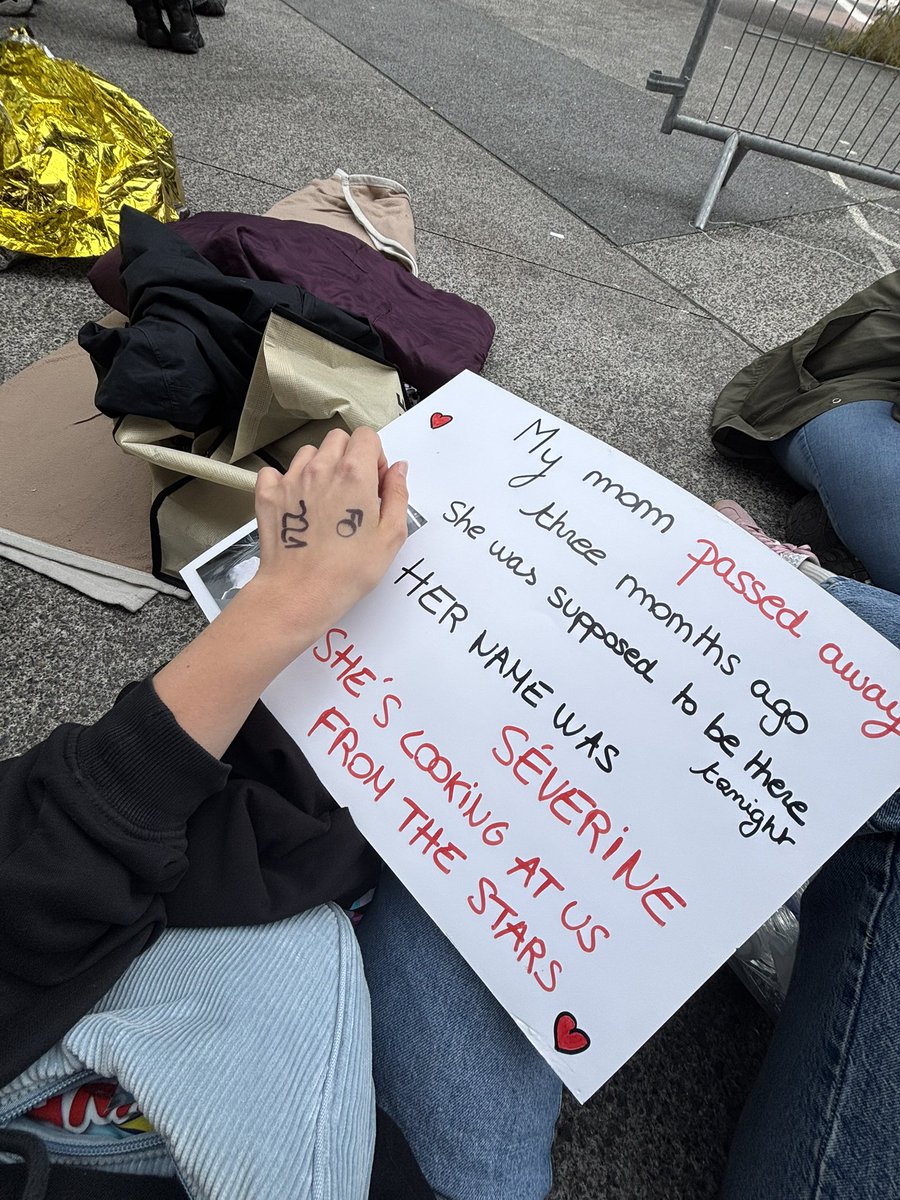 My mom passed away
three months ago
She was supposed to be there
tonight
HER NAME WAS
SÉVERINE
SHE'S LOOKING AT US
FROM THE STARS